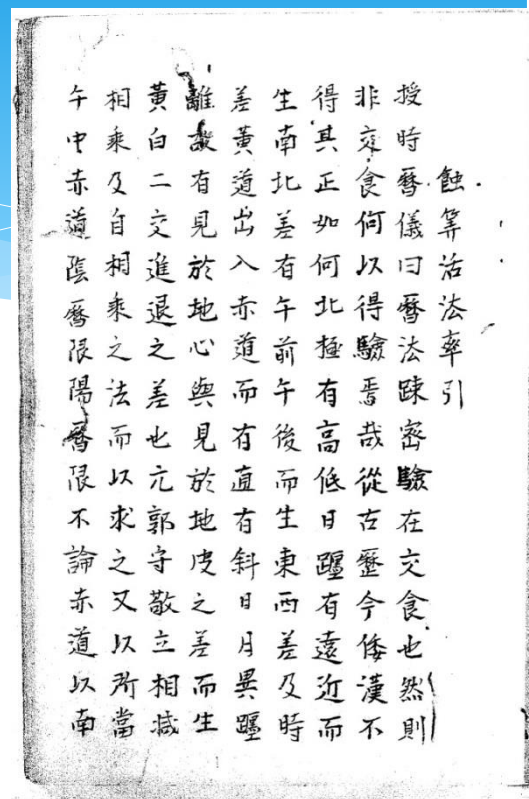 蝕筭活法率引
授時曆儀曰曆法踈密驗在交食也然則
非交食何以得驗焉哉從古歷今倭漢不
得其正如何北極有高低日躔有遠近而
生南北差有午前午後而生東西差及時
差黄道出入赤道而有直有斜日月異躔
離故有見於地心與見於地皮之差而生
黄白二交進退之差也元郭守敬立相減
相乗及自相乗之法而以求之又以所當
午中赤道陰曆限陽曆限不論赤道以南